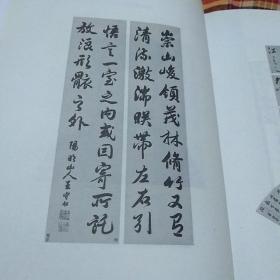 崇山峻領茂林脩竹又有
清流激湍暎帶左右引
悟言一室之內或因寄所託
放浪形骸之外 陽明山人王守仁